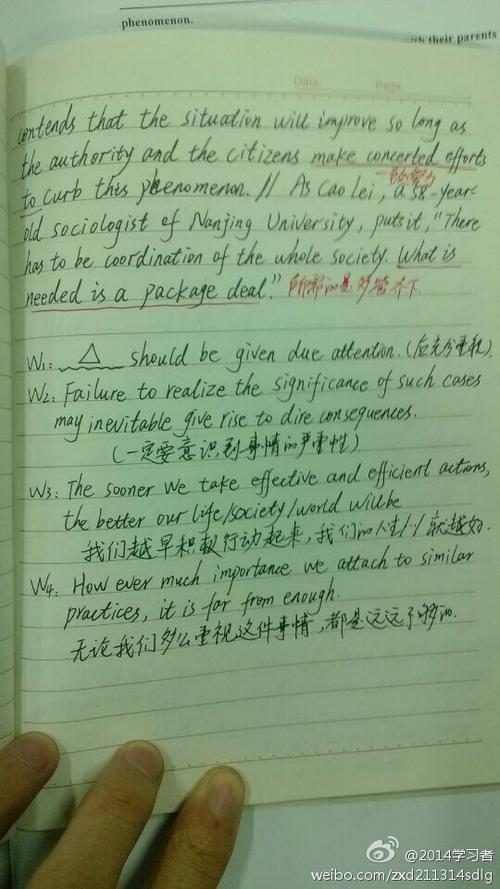 phenomenon.
with their parents
Date. Page.
contends that the situation will improve so long as
the authority and the citizens make concerted efforts
to curb this phenomenon. // As Cao Lei, a 58-year-
old sociologist of Nanjing University, puts it, "There
has to be coordination of the whole society. What is
needed is a package deal." 所需的是多管齐下
W1: △ should be given due attention. (应充分重视).
W2: Failure to realize the significance of such cases
may inevitable give rise to dire consequences.
(一定要意识到事情的严重性)
W3: The sooner we take effective and efficient actions,
the better our life/society/world will be
我们越早积极行动起来, 我们的人生/\/就越好.
W4: How ever much importance we attach to similar
practices, it is far from enough.
无论我们多么重视这件事情, 都是远远不够的.
@2014学习者
weibo.com/zxd211314sdlg